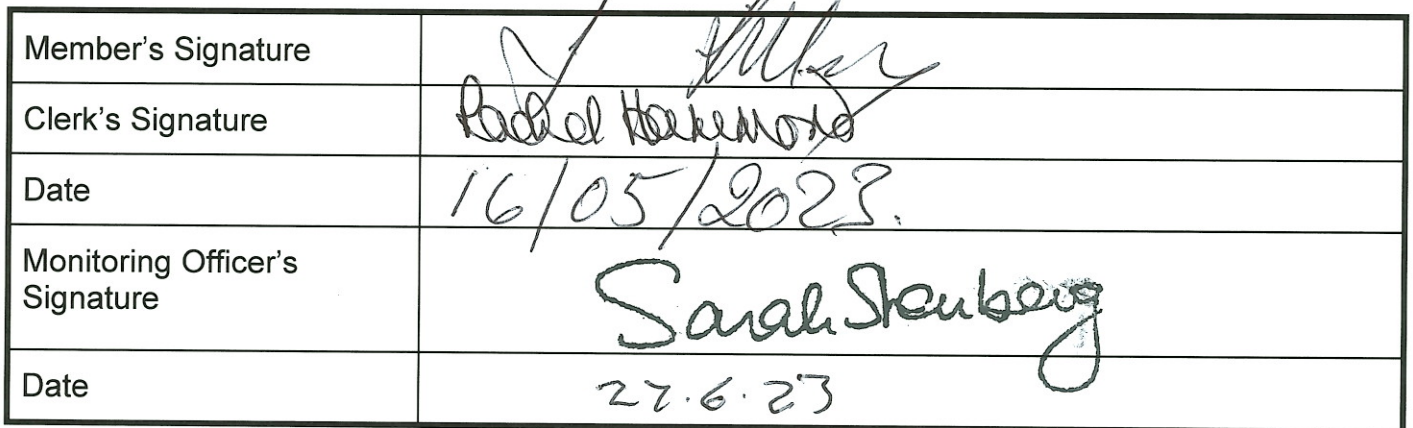 Member's Signature
Clerk's Signature Rachel Hammond
Date 16/05/2023.
Monitoring Officer's
Signature Sarah Stenberg
Date 27.6.23